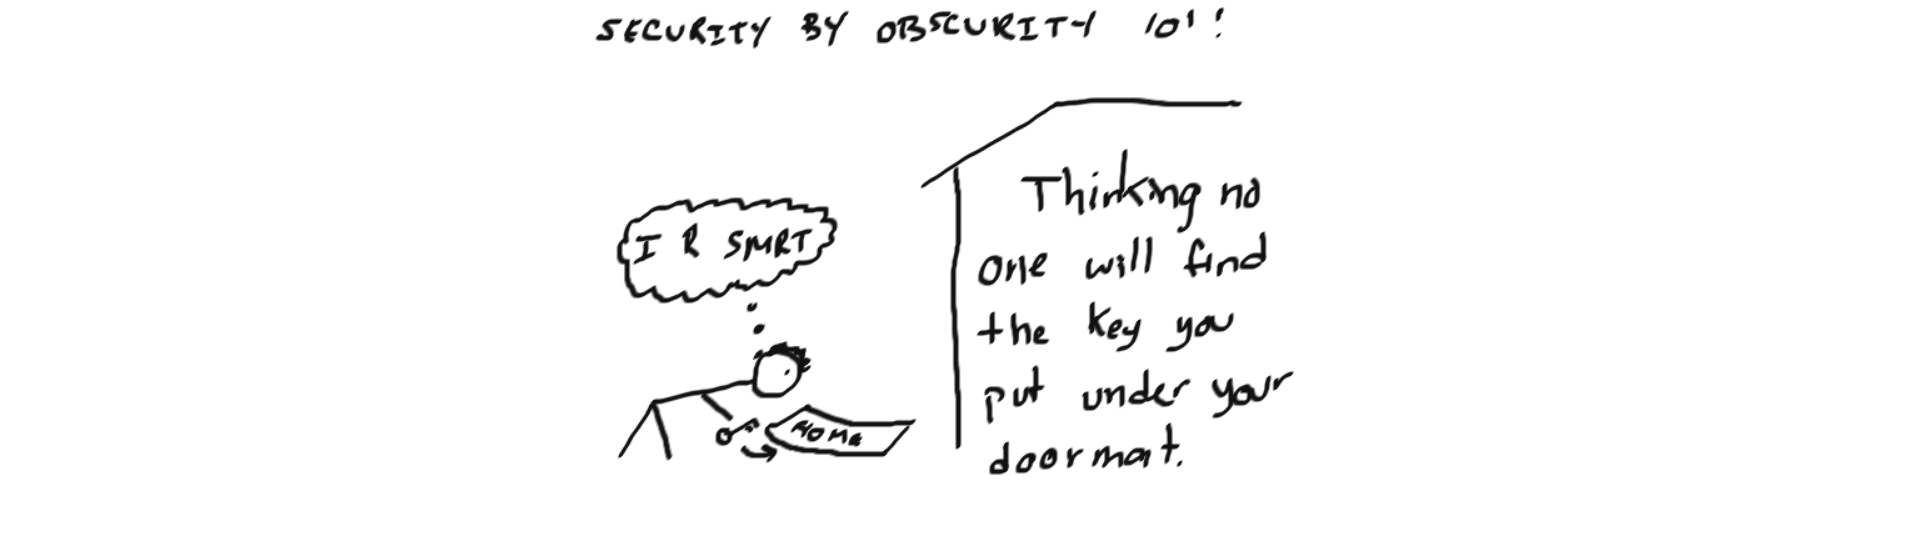 SECURITY BY OBSCURITY 101!
I R SMRT
HOME
Thinking no
one will find
the key you
put under your
doormat.